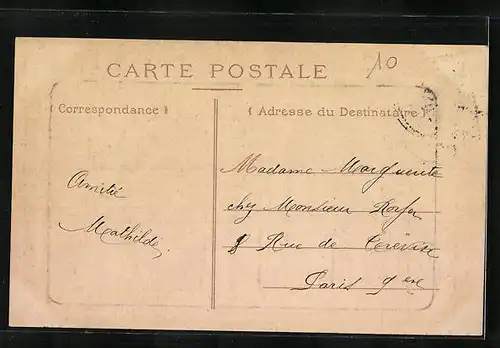 10
CARTE POSTALE
(Correspondance)
(Adresse du Destinataire)
Amitié
Mathilde.
Madame Marguerite
chez Monsieur
8 Rue de Trévise
Paris 9eme